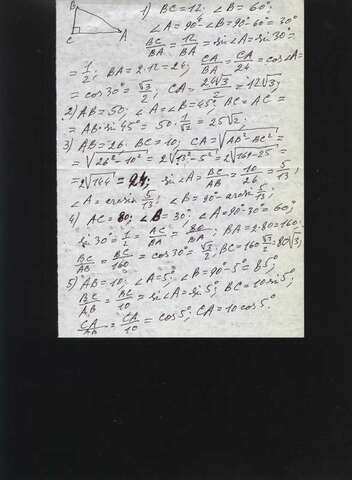 B
C
A
1) BC=12; ∠B=60°;
∠A=90°-∠B=90°-60°=30°
BC/BA = 12/BA = sin∠A = sin30° =
= 1/2; BA=2·12=24; CA/BA = CA/24 = cos∠A =
= cos30° = √3/2; CA = 24√3/2 = 12√3;
2) AB=50; ∠A=∠B=45°; BC=AC=
= AB·sin45° = 50·1/√2 = 25√2;
3) AB=26; BC=10; CA=√AB²-BC² =
= √26²-10² = 2√13²-5² = 2√169-25 =
= 2√144 = 24; sin∠A = BC/AB = 10/26 = 5/13;
∠A = arcsin 5/13; ∠B = 90°-arcsin 5/13;
4) AC=80; ∠B=30°; ∠A=90°-30°=60°;
sin30° = 1/2 = AC/BA = 80/BA; BA=2·80=160;
BC/AB = BC/160 = cos30° = √3/2; BC=160 √3/2 = 80√3;
5) AB=10; ∠A=5°; ∠B=90°-5°=85°;
BC/AB = BC/10 = sin∠A = sin5°; BC=10sin5°;
CA/AB = CA/10 = cos5°; CA=10cos5°